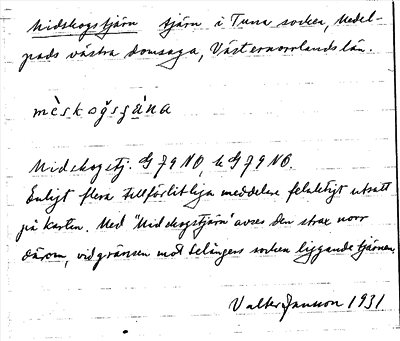 Midskogstjärn tjärn i Tuna socken, Medel-
pads västra domsaga, Västernorrlands län.
mèskogsgäna
Midskogstj. G 79 NO, k G 79 NO.
Enligt flera tillförlitliga meddelare felaktigt utsatt
på kartan. Med "Midskogstjärn" avses den strax norr
därom, vid gränsen mot Selångers socken liggande tjärnen.
Valter Jansson 1931